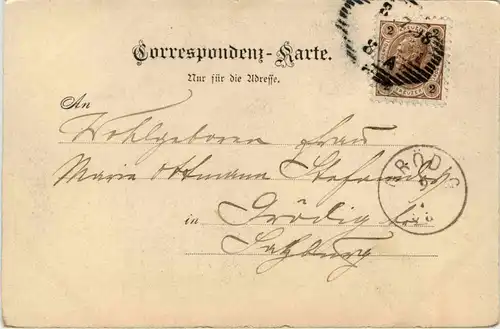 Correspondenz-Karte.
Nur für die Adresse.
An
Wohlgeboren Frau
Marie Ottmann
in Grödig bei
Salzburg
GRÖDIG
2 2